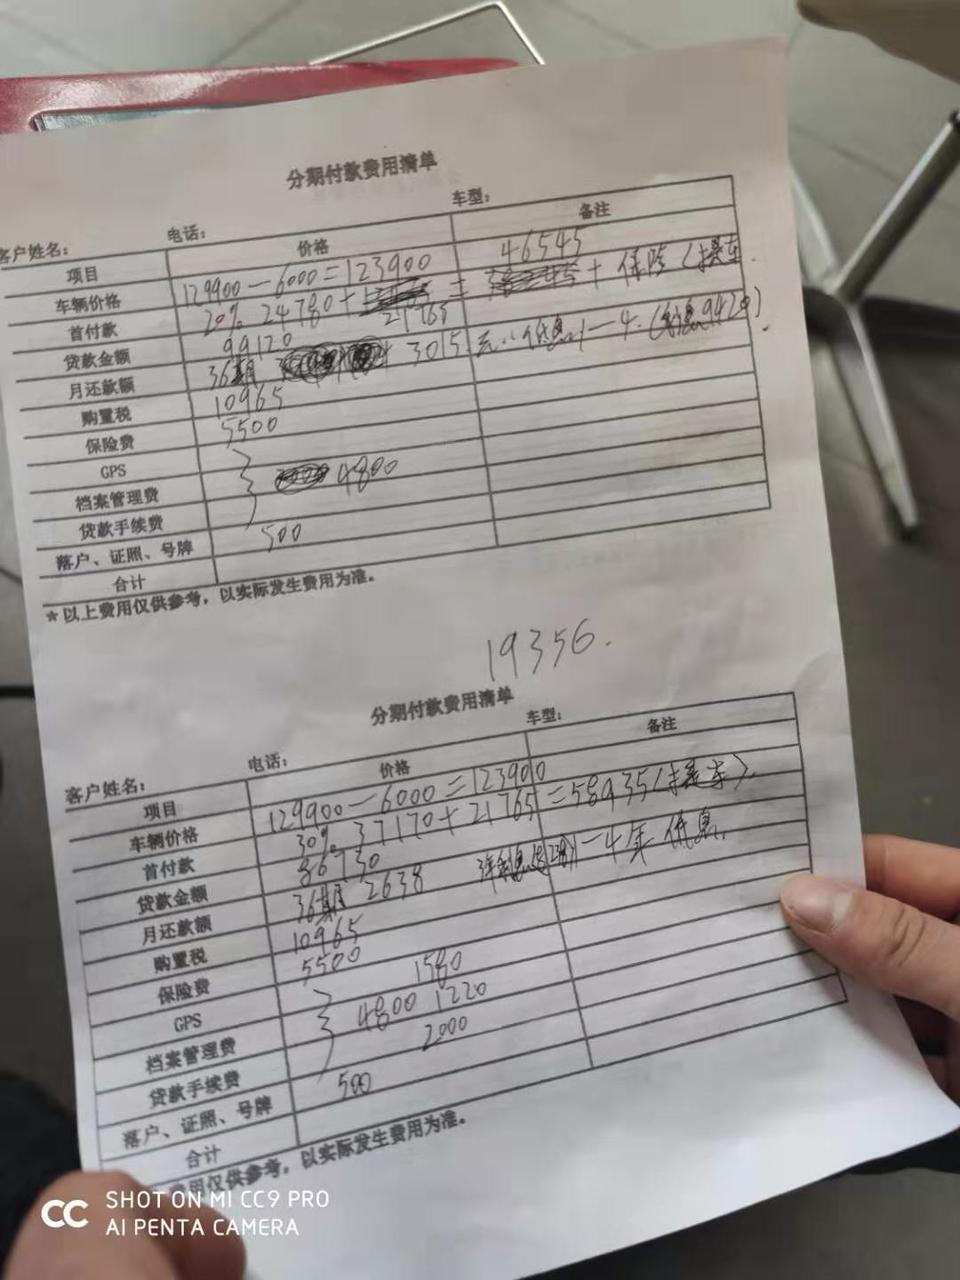 分期付款费用清单
客户姓名： 电话： 车型：
项目 价格 备注
车辆价格 129900-6000=123900 46545
首付款 20% 24780+ 21765 = + 保险（提车
贷款金额 99120
月还款额 36期 3015
购置税 10965
保险费 5500
GPS
档案管理费 4800
贷款手续费
落户、证照、号牌 500
合计
*以上费用仅供参考，以实际发生费用为准。
19356.
分期付款费用清单
客户姓名： 电话： 车型：
项目 价格 备注
车辆价格 129900-6000=123900
首付款 30% 37170+21765=58935（提车）.
贷款金额 86730
月还款额 36期 2638 一4年 低息.
购置税 10965
保险费 5500
GPS 1580
档案管理费 4800 1220
贷款手续费 2000
落户、证照、号牌 500
合计
费用仅供参考，以实际发生费用为准。
SHOT ON MI CC9 PRO
AI PENTA CAMERA